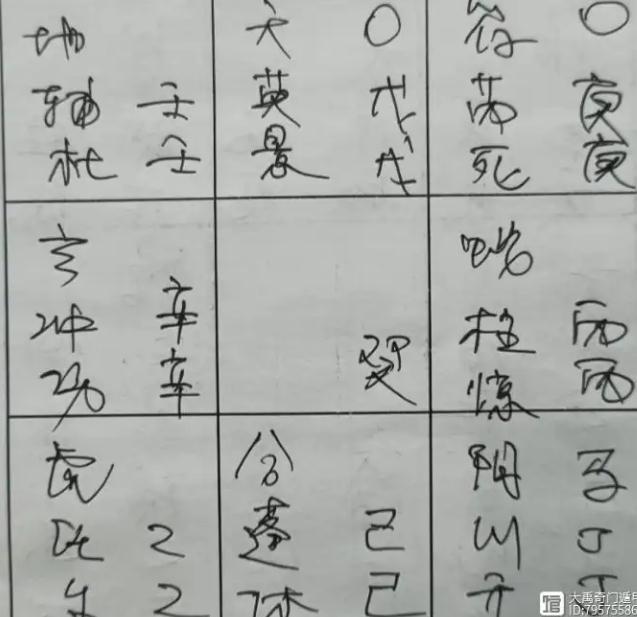 地
辅 壬
杜 壬
天 〇
英 戊
景 戊
符 〇
芮 庚
死 庚
玄
冲 辛
伤 辛
癸
蛇
柱 丙
惊 丙
虎
任 乙
生 乙
合
蓬 己
休 己
阴 马
心 丁
开 丁
大禹奇门遁甲
ID:79575586